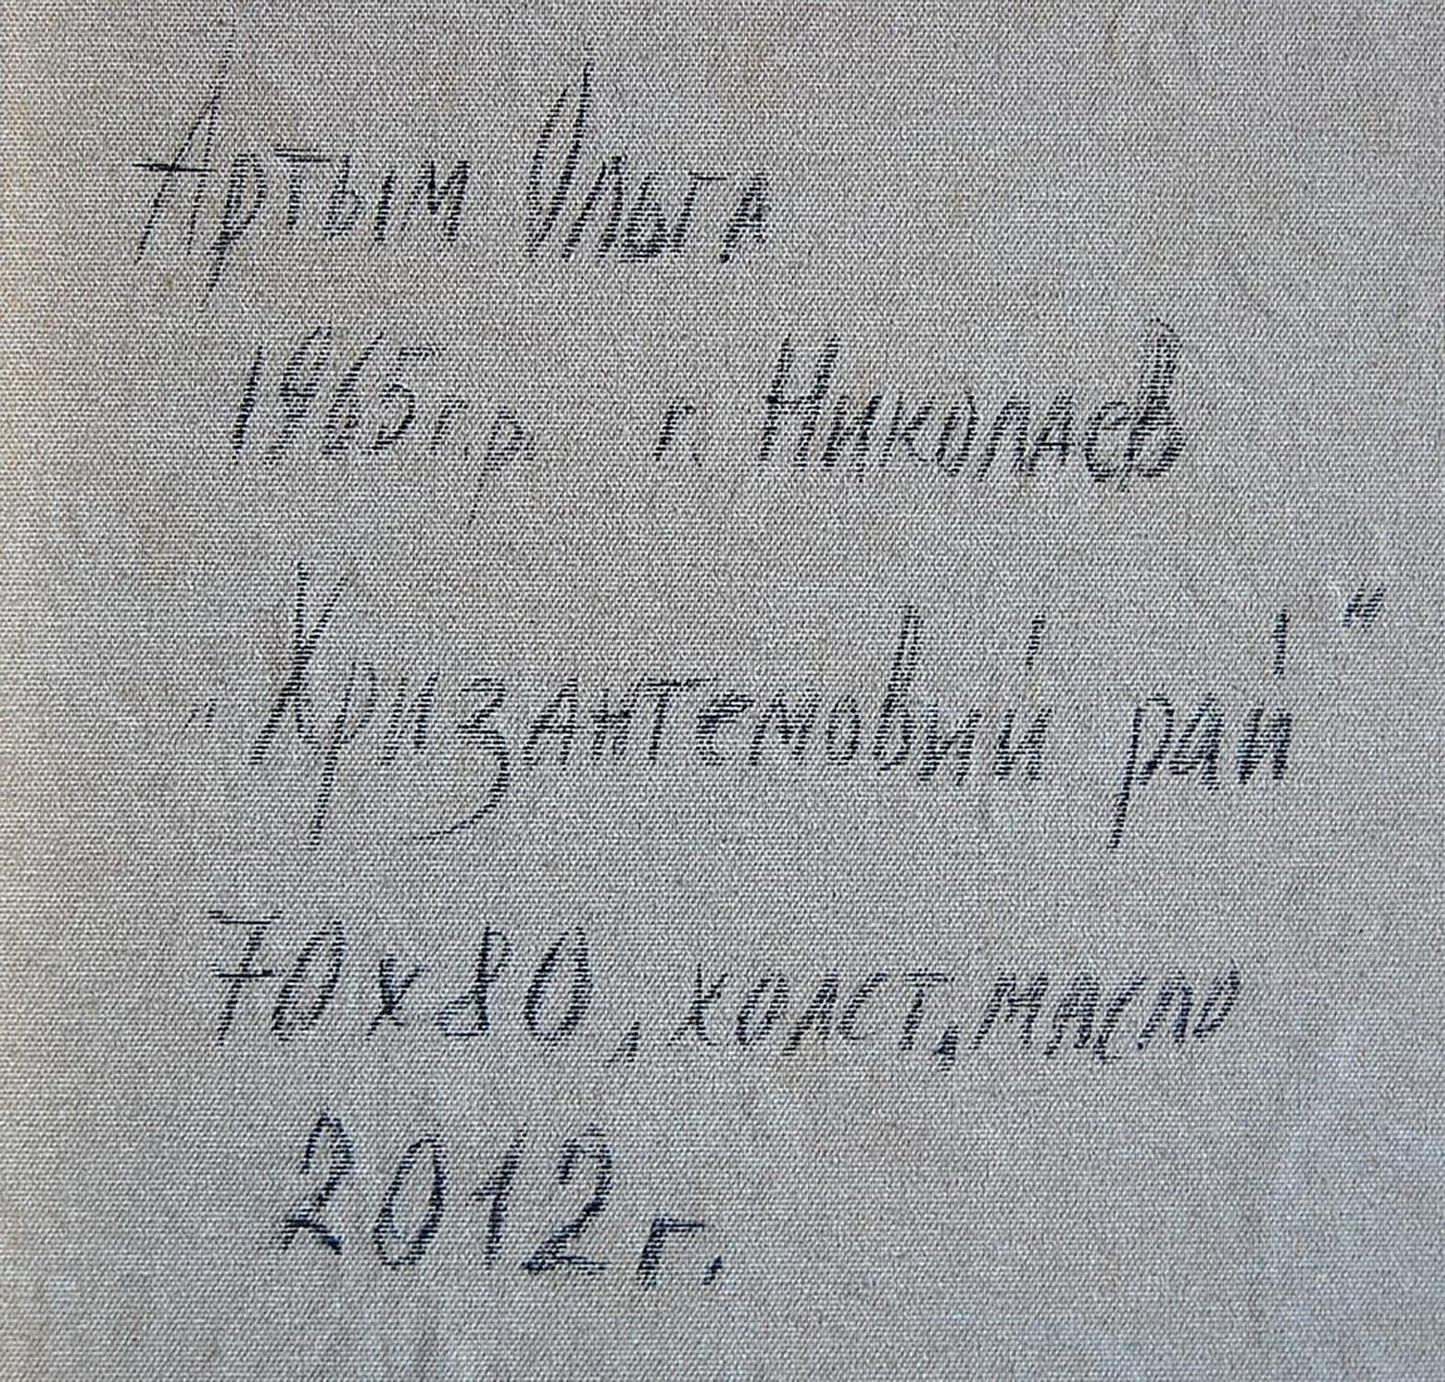 Артым Ольга
1965г.р. г. Николаев
„Хризантемовий рай"
70х80, холст, масло
2012г.